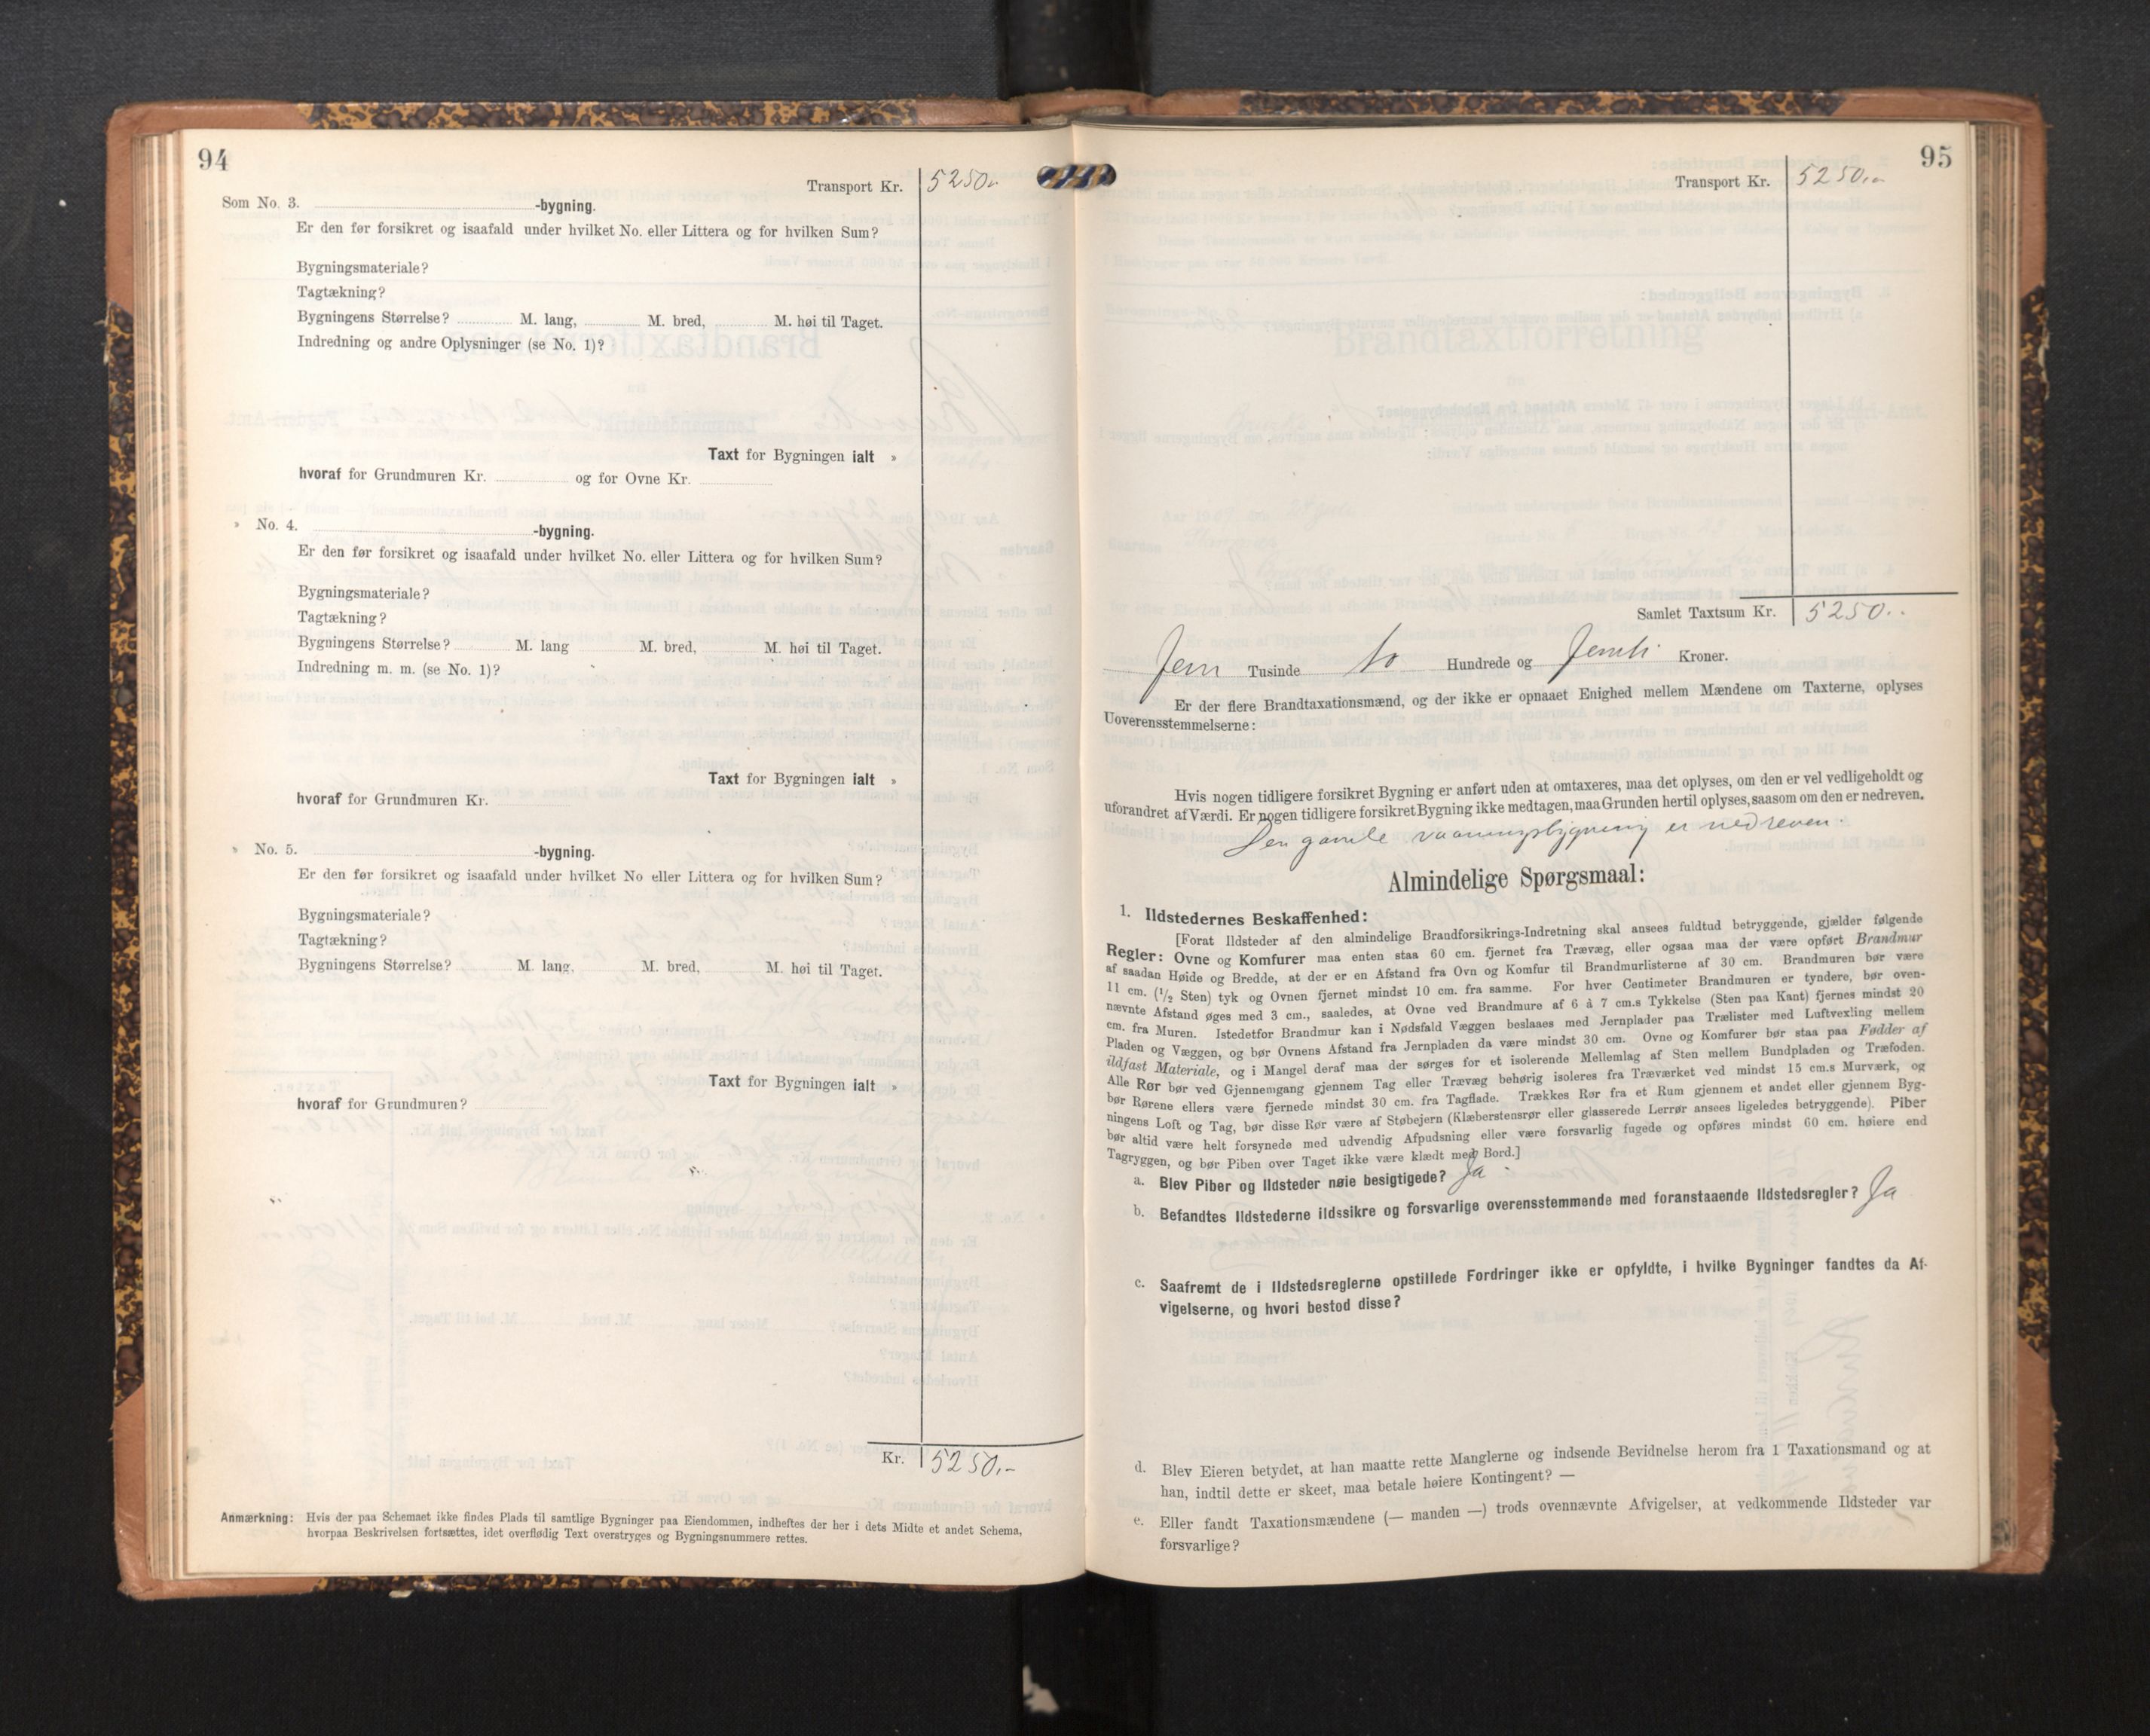 94
Transport Kr. 5250.-
Som No. 3. -bygning.
Er den før forsikret og isaafald under hvilket No. eller Littera og for hvilken Sum?
Bygningsmateriale?
Tagtækning?
Bygningens Størrelse? M. lang, M. bred, M. høi til Taget.
Indredning og andre Oplysninger (se No. 1)?
Taxt for Bygningen ialt »
hvoraf for Grundmuren Kr. og for Ovne Kr.
» No. 4. -bygning.
Er den før forsikret og isaafald under hvilket No. eller Littera og for hvilken Sum?
Bygningsmateriale?
Tagtækning?
Bygningens Størrelse? M. lang M. bred, M. høi til Taget.
Indredning m. m. (se No. 1)?
Taxt for Bygningen ialt »
hvoraf for Grundmuren Kr.
» No. 5. -bygning.
Er den før forsikret og isaafald under hvilket No eller Littera og for hvilken Sum?
Bygningsmateriale?
Tagtækning?
Bygningens Størrelse? M. lang, M. bred, M. høi til Taget.
Taxt for Bygningen ialt »
hvoraf for Grundmuren?
Kr. 5250.-
Anmærkning: Hvis der paa Schemaet ikke findes Plads til samtlige Bygninger paa Eiendommen, indheftes der her i dets Midte et andet Schema,
hvorpaa Beskrivelsen fortsættes, idet overflødig Text overstryges og Bygningsnummere rettes.
95
Transport Kr. 5250.-
Samlet Taxtsum Kr. 5250.-
Fem Tusinde to Hundrede og femti Kroner.
Er der flere Brandtaxationsmænd, og der ikke er opnaaet Enighed mellem Mændene om Taxterne, oplyses
Uoverensstemmelserne:
Hvis nogen tidligere forsikret Bygning er anført uden at omtaxeres, maa det oplyses, om den er vel vedligeholdt og
uforandret af Værdi. Er nogen tidligere forsikret Bygning ikke medtagen, maa Grunden hertil oplyses, saasom om den er nedreven.
Den gamle vaaningsbygning er nedreven.
Almindelige Spørgsmaal:
1. Ildstedernes Beskaffenhed:
[Forat Ildsteder af den almindelige Brandforsikrings-Indretning skal ansees fuldtud betryggende, gjælder følgende
Regler: Ovne og Komfurer maa enten staa 60 cm. fjernet fra Trævæg, eller ogsaa maa der være opført Brandmur
af saadan Høide og Bredde, at der er en Afstand fra Ovn og Komfur til Brandmurlisterne af 30 cm. Brandmuren bør være
11 cm. (1/2 Sten) tyk og Ovnen fjernet mindst 10 cm. fra samme. For hver Centimeter Brandmuren er tyndere, bør oven-
nævnte Afstand øges med 3 cm., saaledes, at Ovne ved Brandmure af 6 à 7 cm.s Tykkelse (Sten paa Kant) fjernes mindst 20
cm. fra Muren. Istedetfor Brandmur kan i Nødsfald Væggen beslaaes med Jernplader paa Trælister med Luftvexling mellem
Pladen og Væggen, og bør Ovnens Afstand fra Jernpladen da være mindst 30 cm. Ovne og Komfurer bør staa paa Fødder af
ildfast Materiale, og i Mangel deraf maa der sørges for et isolerende Mellemlag af Sten mellem Bundpladen og Træfoden.
Alle Rør bør ved Gjennemgang gjennem Tag eller Trævæg behørig isoleres fra Træværket ved mindst 15 cm.s Murværk, og
bør Rørene ellers være fjernede mindst 30 cm. fra Tagflade. Trækkes Rør fra et Rum gjennem et andet eller gjennem Byg-
ningens Loft og Tag, bør disse Rør være af Støbejern (Klæberstensrør eller glasserede Lerrør ansees ligeledes betryggende). Piber
bør altid være helt forsynede med udvendig Afpudsning eller være forsvarlig fugede og opføres mindst 60 cm. høiere end
Tagryggen, og bør Piben over Taget ikke være klædt med Bord.]
a. Blev Piber og Ildsteder nøie besigtigede? Ja
b. Befandtes Ildstederne ildssikre og forsvarlige overensstemmende med foranstaaende Ildstedsregler? Ja
c. Saafremt de i Ildstedsreglerne opstillede Fordringer ikke er opfyldte, i hvilke Bygninger fandtes da Af-
vigelserne, og hvori bestod disse?
d. Blev Eieren betydet, at han maatte rette Manglerne og indsende Bevidnelse herom fra 1 Taxationsmand og at
han, indtil dette er skeet, maa betale høiere Kontingent? —
e. Eller fandt Taxationsmændene (— manden —) trods ovennævnte Afvigelser, at vedkommende Ildsteder var
forsvarlige?